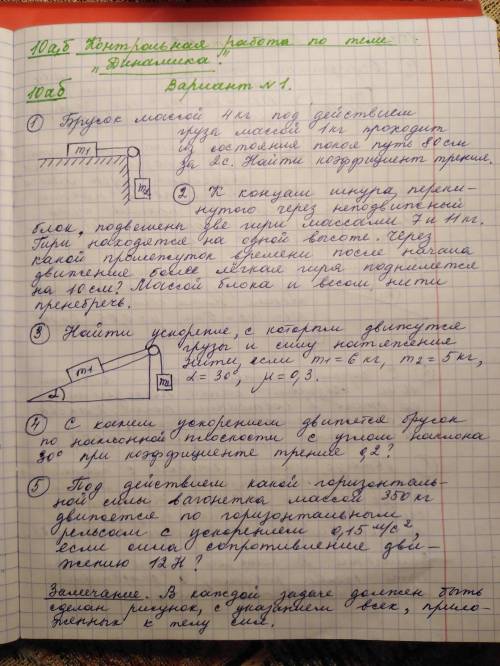 10а,б Контрольная работа по теме
"Динамика".
10аб Вариант №1.
① Брусок массой 4 кг под действием
груза массой 1 кг проходит
из состояния покоя путь 80 см
за 2с. Найти коэффициент трения.
m1
m2
② К концам шнура, переки-
нутого через неподвижный
блок, подвешены две гири массами 7 и 11 кг.
Гири находятся на одной высоте. Через
какой промежуток времени после начала
движения более лёгкая гиря поднимется
на 10 см? Массой блока и весом нити
пренебречь.
③ Найти ускорение, с которым движутся
грузы и силу натяжения
нити, если m1 = 6 кг, m2 = 5 кг,
α = 30°, μ = 0,3.
m1
m2
α
④ С каким ускорением движется брусок
по наклонной плоскости с углом наклона
30° при коэффициенте трения 0,2?
⑤ Под действием какой горизонталь-
ной силы вагонетка массой 350 кг
движется по горизонтальным
рельсам с ускорением 0,15 м/с²,
если сила сопротивления дви-
жению 12 Н?
Замечание. В каждой задаче должен быть
сделан рисунок, с указанием всех, прило-
женных к телу сил.